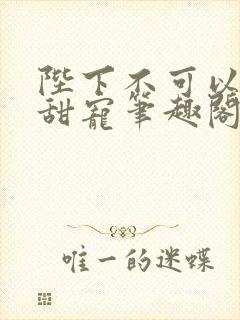 陛下不可以
甜寵筆趣閣
唯一的迷蝶